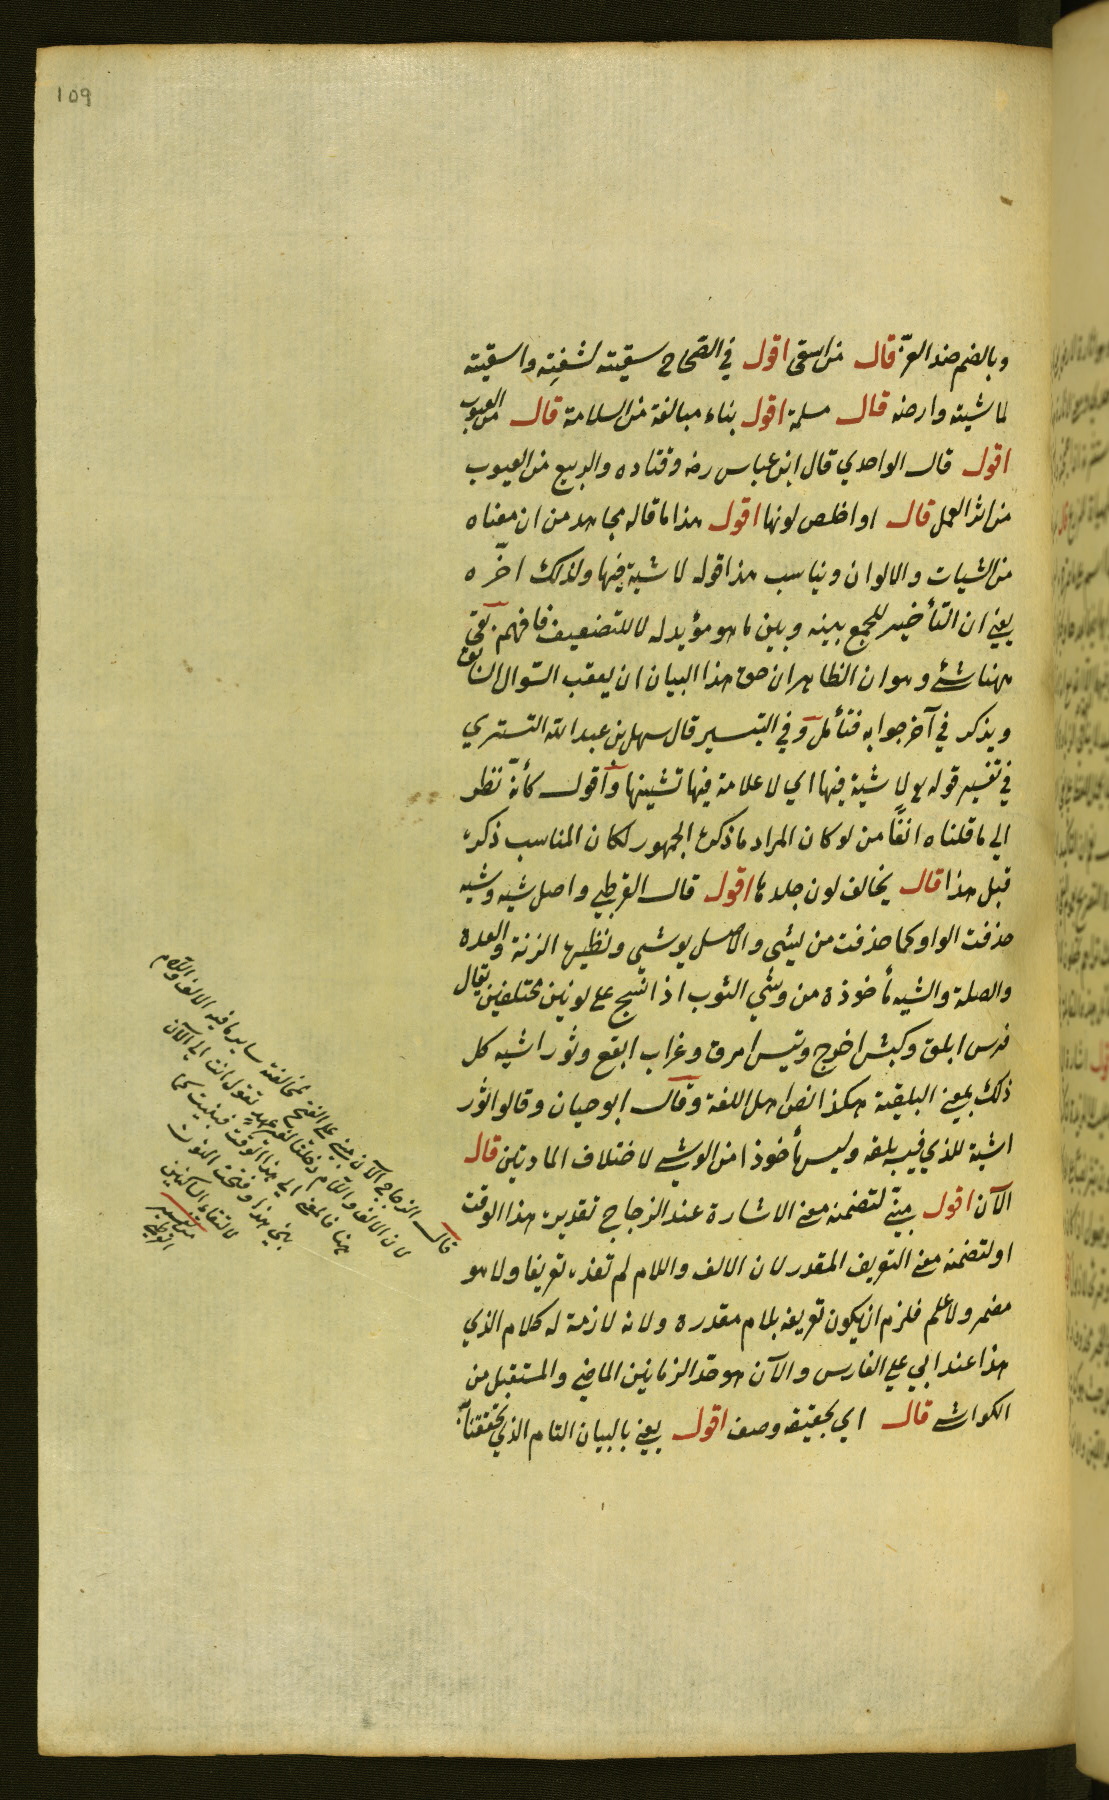 ۱۵۹
وبالضم ضد العزّ قال من اسقى اقول في الصّحاح سقيته لشفته واسقيته
لماشيته وارضه قال مسلمة اقول بناء مبالغة من السلامة قال من العيوب
اقول قال الواحدي قال ابن عباس رضه وقتاده والربيع من العيوب
من اثر العمل قال او اخلص لونها اقول هذا ما قاله مجاهد من ان معناه
من الشيات والالوان ويناسب هذا قوله لا شية فيها ولذلك اخّره
يعني ان التأخير للجمع بينه وبين ما هو مؤيد له لا للتضعيف فافهم بقي
ههنا شئ وهو ان الظاهر ان حق هذا البيان ان يعقب السّوال السابق
ويذكر في آخر جوابه فتأمل وفي التيسير قال سهل بن عبد الله التستري
في تفسير قوله لا شية فيها اي لا علامة فيها تشينها واقول كأنّه نظر
الي ما قلناه انفًا من لو كان المراد ما ذكره الجمهور لكان المناسب ذكره
قبل هذا قال يخالف لون جلدها اقول قال القرطبي واصل شيه وشيه
حذفت الواو كما حذفت من يشي والاصل يوشي ونظيرها الزنة والعدة
والصلة والشيه مأخوذة من وشي الثوب اذا نسج على لونين مختلفين يقال
فرس ابلق وكبش اخرج وتيس ابرق وغراب ابقع وثور اشيه كل
ذلك بمعنى البلقة هكذا نص اهل اللغة وقال ابو حيان وقالوا ثور
اشية للذي فيه بلقه وليس مأخوذا من الوشي لاختلاف المادتين قال
الآن اقول مبنيّ لتضمنه معنى الاشارة عند الزجاج تقديره هذا الوقت
او لتضمنه معنى التعريف المقدر لان الالف واللام لم تفده تعريفا ولا هو
مضمر ولا علم فلزم ان يكون تعريفه بلام مقدرة ولانه لازمة له كلام الذي
هذا عند ابي علي الفارس والآن هو حدّ الزمانين الماضي والمستقبل من
الكواشي قال اي بحقيقة وصف اقول يعني بالبيان التام الذي تحققنا به
قال الزجاج الآن مبني على الفتح لمخالفته سايره ما فيه الالف واللام
لان الالف واللام دخلتا لغير عهد تقول انت الى الآن
هنا فالمعنى الى هذا الوقت فبنيت كما
بني هذا وفتحت النون
لالتقاء الساكنين
تفسير
القرطبي